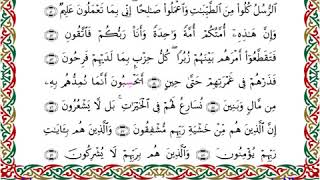 ٱلرُّسُلُ كُلُوا۟ مِنَ ٱلطَّيِّبَٰتِ وَٱعْمَلُوا۟ صَٰلِحًا ۖ إِنِّى بِمَا تَعْمَلُونَ عَلِيمٌ ﴿٥١﴾
وَإِنَّ هَٰذِهِۦٓ أُمَّتُكُمْ أُمَّةً وَٰحِدَةً وَأَنَا۠ رَبُّكُمْ فَٱتَّقُونِ ﴿٥٢﴾
فَتَقَطَّعُوٓا۟ أَمْرَهُم بَيْنَهُمْ زُبُرًا ۖ كُلُّ حِزْبٍۭ بِمَا لَدَيْهِمْ فَرِحُونَ ﴿٥٣﴾
فَذَرْهُمْ فِى غَمْرَتِهِمْ حَتَّىٰ حِينٍ ﴿٥٤﴾ أَيَحْسَبُونَ أَنَّمَا نُمِدُّهُم بِهِۦ
مِن مَّالٍ وَبَنِينَ ﴿٥٥﴾ نُسَارِعُ لَهُمْ فِى ٱلْخَيْرَٰتِ ۚ بَل لَّا يَشْعُرُونَ ﴿٥٦﴾
إِنَّ ٱلَّذِينَ هُم مِّنْ خَشْيَةِ رَبِّهِم مُّشْفِقُونَ ﴿٥٧﴾ وَٱلَّذِينَ هُم بِـَٔايَٰتِ
رَبِّهِمْ يُؤْمِنُونَ ﴿٥٨﴾ وَٱلَّذِينَ هُم بِرَبِّهِمْ لَا يُشْرِكُونَ ﴿٥٩﴾